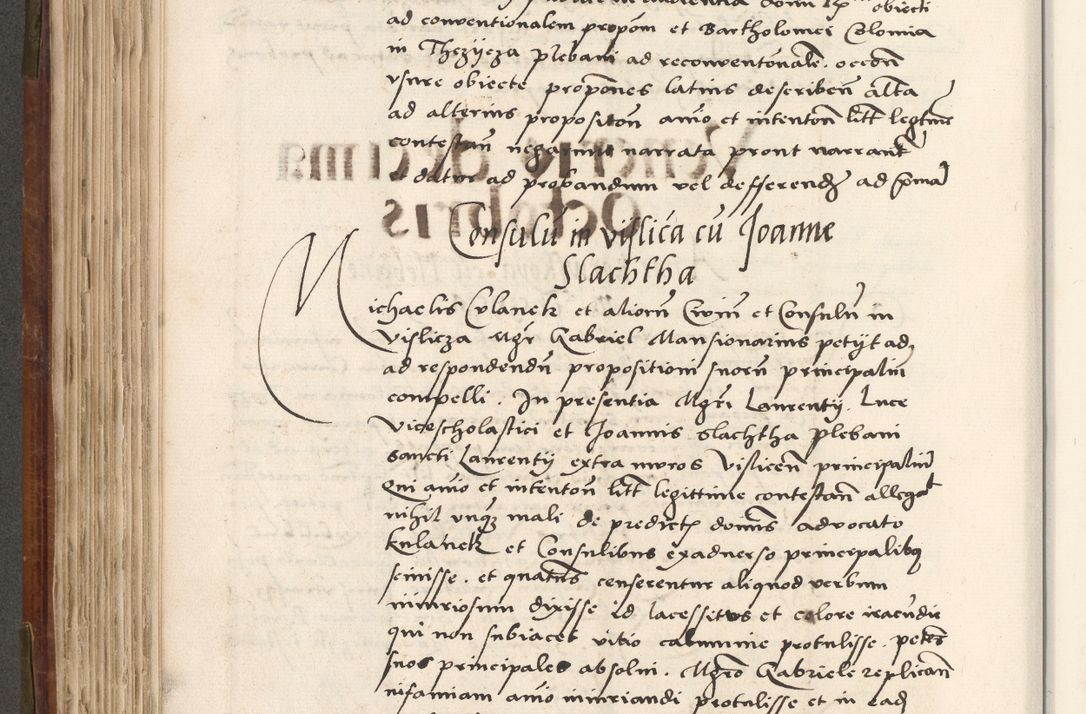 ad conventionalem propom et Bartholomei Colonia
in Thczijcza plebani ad reconventonale. occon
vsure obiecte propones latius describen alta
ad alterius propositon anio et intenton litt legtime
contestan negarunt narrata pront narrant
et datur ad probandum vel defferend ad pma
Consulu in vislica cu Joanne
Slachtha
Michaelis Culanek et aliorn Civin et Consulu in
vislicza Mgr Gabriel Mansionarius petijt ad
ad respondendu propositioni suorn principaliu
compelli. In presentia Mgri Laurentij. Luce
vicescholastici et Joannis Slachtha plebani
sancti Laurentij extra muros Vislicen principaliu
Qui anio et intenton litt legittime contestan allegat
nihil unqz mali de predict domns advocato
Kulanek et Consulibus exadverso principalibq
scivisse. et quatns censerentur aliquod verbum
iniuriosum dixisse id lacessitus et colore iracudie
qui non subiacet vitio calumnie protulisse. petes
suos principales absolui. Mgro Gabriele replican
infamiam anio iniuriandi protulisse et in ead